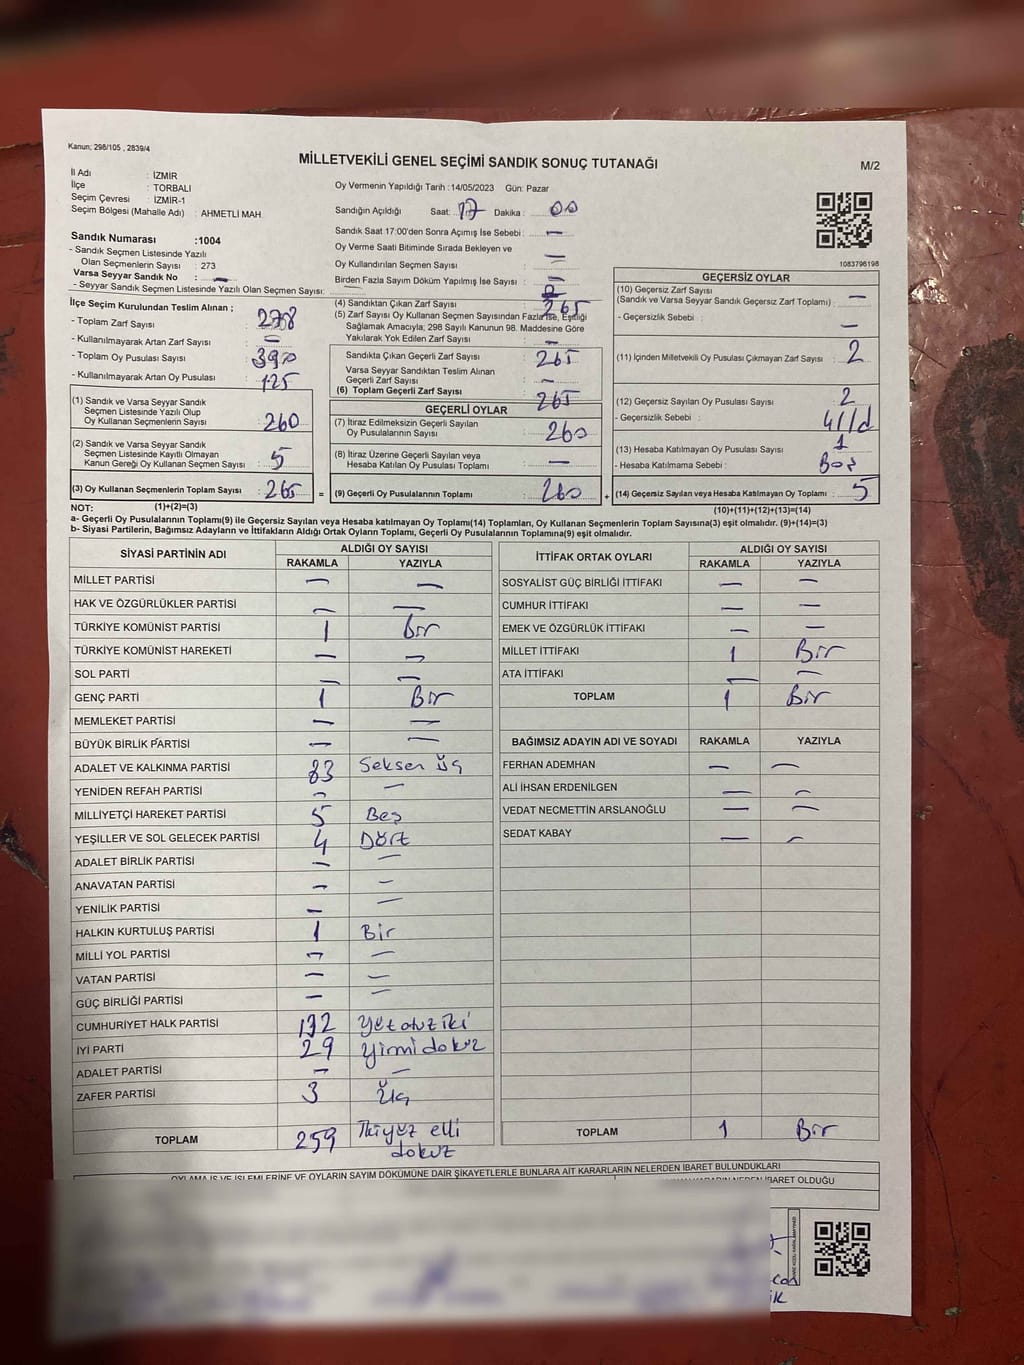 Kanun; 298/105 , 2839/4
MİLLETVEKİLİ GENEL SEÇİMİ SANDIK SONUÇ TUTANAĞI
M/2
İl Adı : İZMİR
İlçe : TORBALI
Seçim Çevresi : İZMİR-1
Seçim Bölgesi (Mahalle Adı) : AHMETLİ MAH.
Oy Vermenin Yapıldığı Tarih :14/05/2023 Gün: Pazar
Sandığın Açıldığı Saat: 17 Dakika : 00
Sandık Saat 17:00'den Sonra Açımış İse Sebebi : —
Oy Verme Saati Bitiminde Sırada Bekleyen ve
Oy Kullandırılan Seçmen Sayısı : —
Birden Fazla Sayım Döküm Yapılmış İse Sayısı : —
Sandık Numarası :1004
- Sandık Seçmen Listesinde Yazılı
Olan Seçmenlerin Sayısı : 273
Varsa Seyyar Sandık No : —
- Seyyar Sandık Seçmen Listesinde Yazılı Olan Seçmen Sayısı: —
1083796198
İlçe Seçim Kurulundan Teslim Alınan ;
- Toplam Zarf Sayısı : 278
- Kullanılmayarak Artan Zarf Sayısı : —
- Toplam Oy Pusulası Sayısı : 390
- Kullanılmayarak Artan Oy Pusulası : 125
(1) Sandık ve Varsa Seyyar Sandık
Seçmen Listesinde Yazılı Olup
Oy Kullanan Seçmenlerin Sayısı : 260
(2) Sandık ve Varsa Seyyar Sandık
Seçmen Listesinde Kayıtlı Olmayan
Kanun Gereği Oy Kullanan Seçmen Sayısı : 5
(3) Oy Kullanan Seçmenlerin Toplam Sayısı : 265 =
(4) Sandıktan Çıkan Zarf Sayısı : 265
(5) Zarf Sayısı Oy Kullanan Seçmen Sayısından Fazla İse, Eşitliği
Sağlamak Amacıyla; 298 Sayılı Kanunun 98. Maddesine Göre
Yakılarak Yok Edilen Zarf Sayısı : —
Sandıkta Çıkan Geçerli Zarf Sayısı : 265
Varsa Seyyar Sandıktan Teslim Alınan
Geçerli Zarf Sayısı : —
(6) Toplam Geçerli Zarf Sayısı : 265
GEÇERLİ OYLAR
(7) İtiraz Edilmeksizin Geçerli Sayılan
Oy Pusulalarının Sayısı : 260
(8) İtiraz Üzerine Geçerli Sayılan veya
Hesaba Katılan Oy Pusulası Toplamı : —
(9) Geçerli Oy Pusulalarının Toplamı : 260 +
GEÇERSİZ OYLAR
(10) Geçersiz Zarf Sayısı
(Sandık ve Varsa Seyyar Sandık Geçersiz Zarf Toplamı) : —
- Geçersizlik Sebebi : —
(11) İçinden Milletvekili Oy Pusulası Çıkmayan Zarf Sayısı : 2
(12) Geçersiz Sayılan Oy Pusulası Sayısı : 2
- Geçersizlik Sebebi :
(13) Hesaba Katılmayan Oy Pusulası Sayısı : 1
- Hesaba Katılmama Sebebi : Boş
(14) Geçersiz Sayılan veya Hesaba Katılmayan Oy Toplamı : 5
NOT: (1)+(2)=(3) (10)+(11)+(12)+(13)=(14)
a- Geçerli Oy Pusulalarının Toplamı(9) ile Geçersiz Sayılan veya Hesaba katılmayan Oy Toplamı(14) Toplamları, Oy Kullanan Seçmenlerin Toplam Sayısına(3) eşit olmalıdır. (9)+(14)=(3)
b- Siyasi Partilerin, Bağımsız Adayların ve İttifakların Aldığı Ortak Oyların Toplamı, Geçerli Oy Pusulalarının Toplamına(9) eşit olmalıdır.
SİYASİ PARTİNİN ADI ALDIĞI OY SAYISI
RAKAMLA YAZIYLA
MİLLET PARTİSİ — —
HAK VE ÖZGÜRLÜKLER PARTİSİ — —
TÜRKİYE KOMÜNİST PARTİSİ 1 Bir
TÜRKİYE KOMÜNİST HAREKETİ — —
SOL PARTİ — —
GENÇ PARTİ 1 Bir
MEMLEKET PARTİSİ — —
BÜYÜK BİRLİK PARTİSİ — —
ADALET VE KALKINMA PARTİSİ 83 Seksen Üç
YENİDEN REFAH PARTİSİ — —
MİLLİYETÇİ HAREKET PARTİSİ 5 Beş
YEŞİLLER VE SOL GELECEK PARTİSİ 4 Dört
ADALET BİRLİK PARTİSİ — —
ANAVATAN PARTİSİ — —
YENİLİK PARTİSİ — —
HALKIN KURTULUŞ PARTİSİ 1 Bir
MİLLİ YOL PARTİSİ — —
VATAN PARTİSİ — —
GÜÇ BİRLİĞİ PARTİSİ — —
CUMHURİYET HALK PARTİSİ 132 Yüz otuz iki
İYİ PARTİ 29 Yirmi dokuz
ADALET PARTİSİ — —
ZAFER PARTİSİ 3 Üç
TOPLAM 259 İkiyüz elli
dokuz
İTTİFAK ORTAK OYLARI ALDIĞI OY SAYISI
RAKAMLA YAZIYLA
SOSYALİST GÜÇ BİRLİĞİ İTTİFAKI — —
CUMHUR İTTİFAKI — —
EMEK VE ÖZGÜRLÜK İTTİFAKI — —
MİLLET İTTİFAKI 1 Bir
ATA İTTİFAKI — —
TOPLAM 1 Bir
BAĞIMSIZ ADAYIN ADI VE SOYADI RAKAMLA YAZIYLA
FERHAN ADEMHAN — —
ALİ İHSAN ERDENİLGEN — —
VEDAT NECMETTİN ARSLANOĞLU — —
SEDAT KABAY — —
TOPLAM 1 Bir
OYLAMA İŞ VE İŞLEMLERİNE VE OYLARIN SAYIM DÖKÜMÜNE DAİR ŞİKAYETLERLE BUNLARA AİT KARARLARIN NELERDEN İBARET BULUNDUKLARI
İBARET OLDUĞU